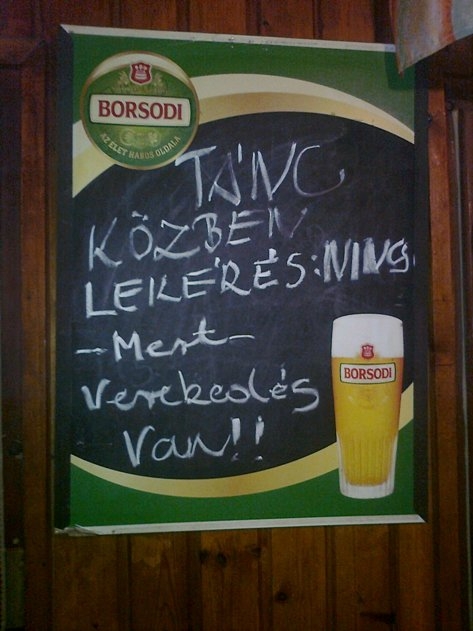 BORSODI
AZ ÉLET HABOS OLDALA
TÁNC
KÖZBEN
LEKÉRÉS: NINCS
-Mert-
Verekedés
Van!!
BORSODI